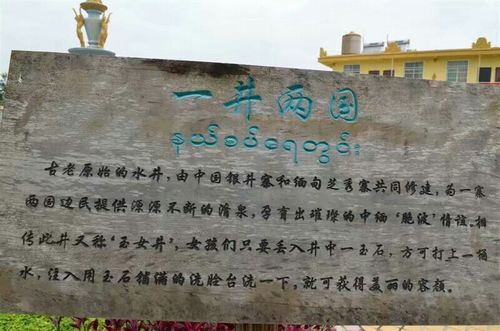 一井两国
နယ်စပ်ရေတွင်း
古老原始的水井，由中国银井寨和缅甸芒秀寨共同修建，为一寨
两国边民提供源源不断的清泉，孕育出璀璨的中缅“胞波”情谊。相
传此井又称‘玉女井’，女孩们只要丢入井中一玉石，方可打上一桶
水，注入用玉石铺满的洗脸台洗一下，就可获得美丽的容颜。